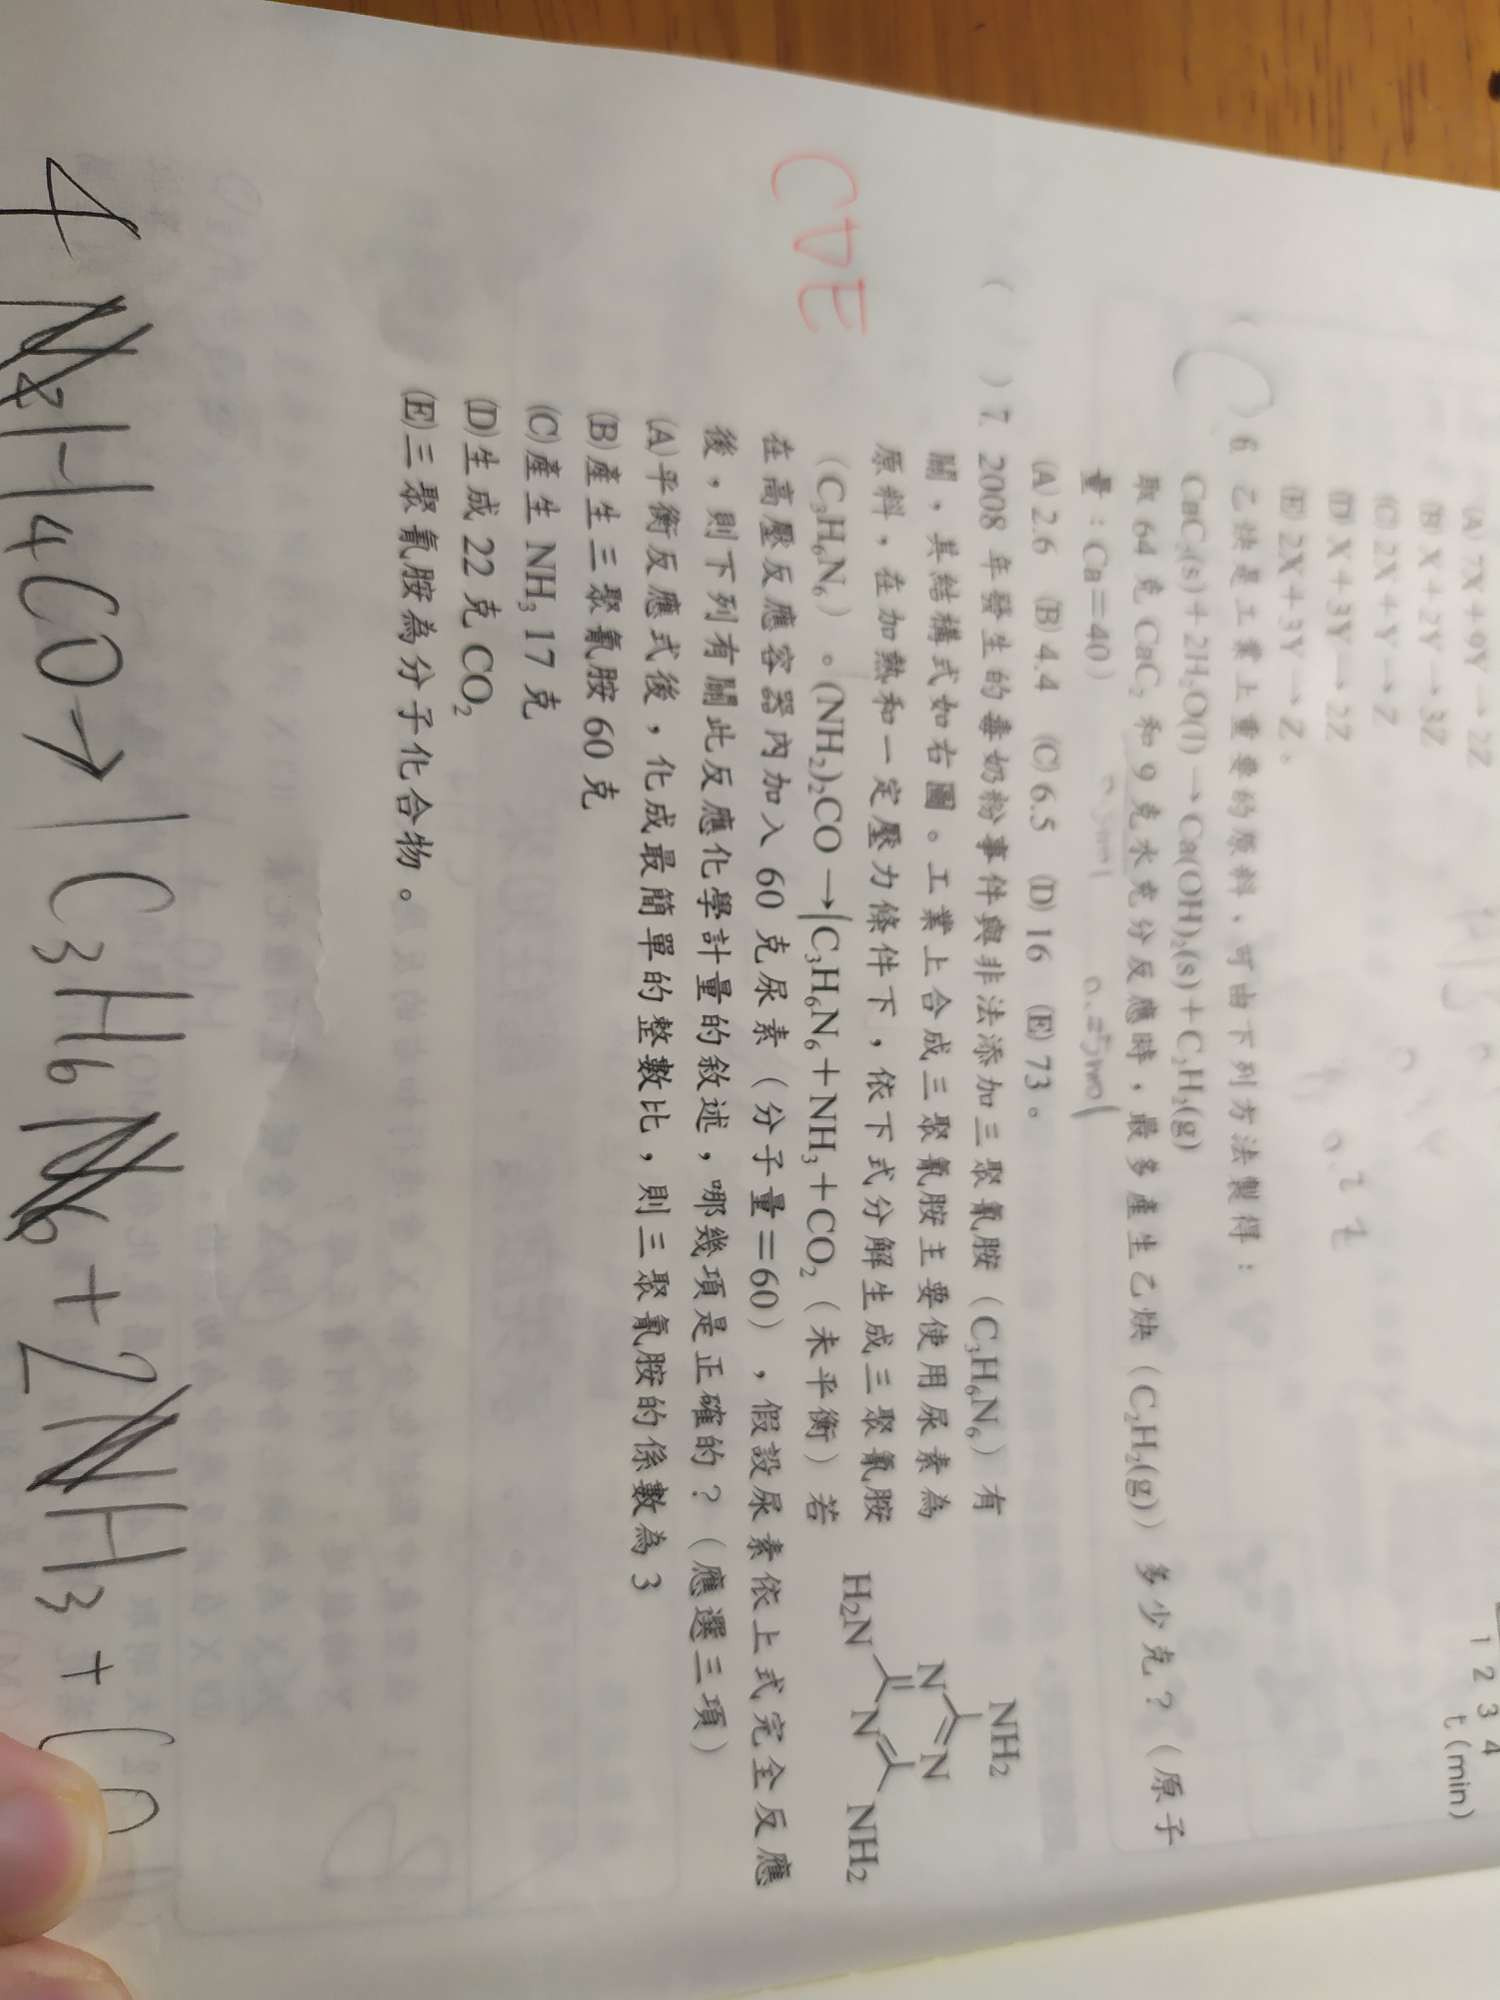 (A) 7X＋9Y→2Z
(B) X＋2Y→3Z
(C) 2X＋Y→Z
(D) X＋3Y→2Z
(E) 2X＋3Y→Z。
1 2 3 4
t (min)
( C ) 6. 乙炔是工業上重要的原料，可由下列方法製得：
CaC₂(s)＋2H₂O(l)→Ca(OH)₂(s)＋C₂H₂(g)
取 64 克 CaC₂ 和 9 克水充分反應時，最多產生乙炔（C₂H₂(g)）多少克？（原子
量：Ca＝40）
(A) 2.6 (B) 4.4 (C) 6.5 (D) 16 (E) 73。
( ) 7. 2008 年發生的毒奶粉事件與非法添加三聚氰胺（C₃H₆N₆）有
關，其結構式如右圖。工業上合成三聚氰胺主要使用尿素為
原料，在加熱和一定壓力條件下，依下式分解生成三聚氰胺
（C₃H₆N₆）。(NH₂)₂CO→C₃H₆N₆＋NH₃＋CO₂（未平衡）若
在高壓反應容器內加入 60 克尿素（分子量＝60），假設尿素依上式完全反應
後，則下列有關此反應化學計量的敘述，哪幾項是正確的？（應選三項）
(A)平衡反應式後，化成最簡單的整數比，則三聚氰胺的係數為 3
(B)產生三聚氰胺 60 克
(C)產生 NH₃ 17 克
(D)生成 22 克 CO₂
(E)三聚氰胺為分子化合物。
NH₂
N N
H₂N N NH₂
CDE
N₂H₄CO→1C₃H₆N₆+2NH₃+